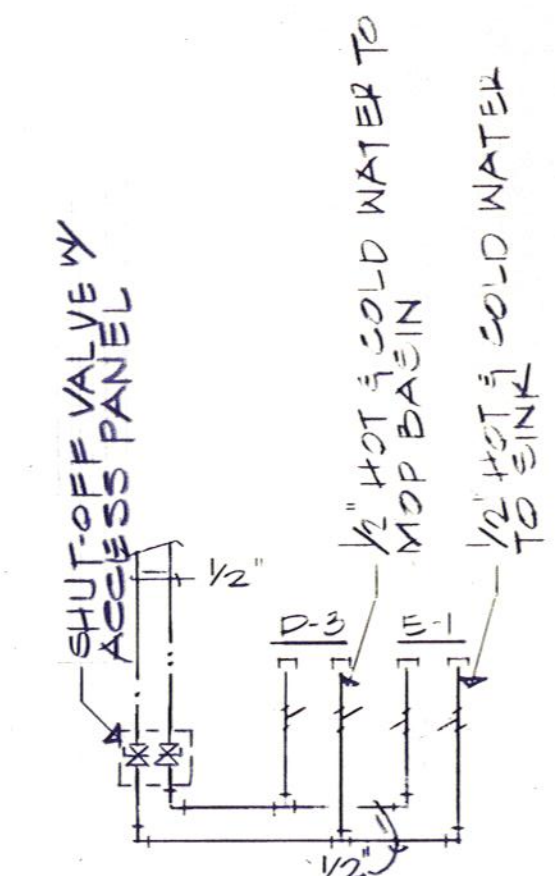 SHUT-OFF VALVE W/
ACCESS PANEL
1/2"
D-3
E-1
1/2" HOT & COLD WATER TO
MOP BASIN
1/2" HOT & COLD WATER
TO SINK
1/2"